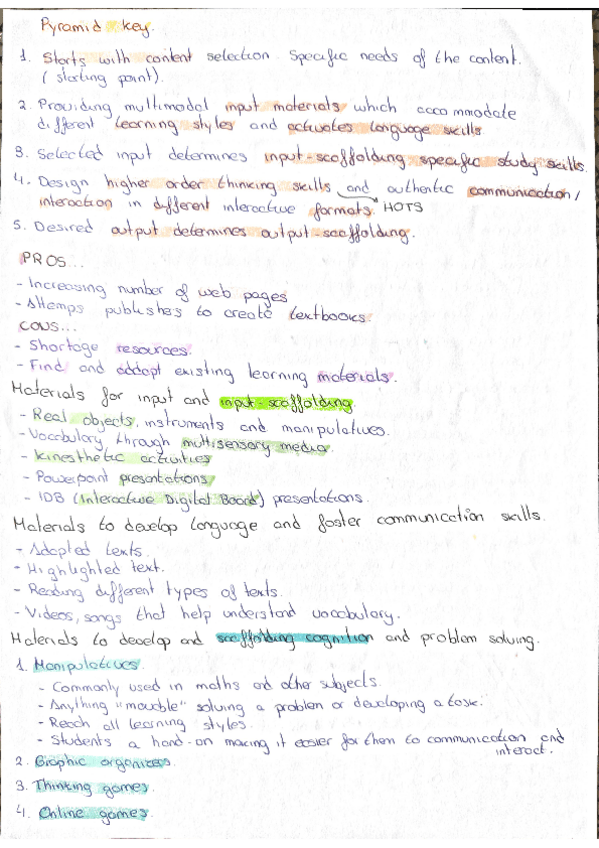 Pyramid key.
1. Starts with content selection. Specific needs of the content.
(starting point).
2. Providing multimodal input materials which accommodate
different learning styles and activates language skills
3. Selected input determines input-scaffolding specific study skills.
4. Design higher order thinking skills and authentic communication/
interaction in different interactive formats. HOTS
5. Desired output determines output-scaffolding.
PROS...
- Increasing number of web pages
- Attemps publishes to create textbooks.
CONS...
- Shortage resources.
- Find and addapt existing learning materials.
Materials for input and input-scaffolding
- Real objects, instruments and manipulatives.
- Vocabulary through multisensory media.
- Kinesthetic activities
- Powerpoint presentations
- IDB (Interactive Digital Board) presentations.
Materials to develop language and foster communication skills.
- Adapted texts.
- Highlighted text.
- Reading different types of texts.
- Videos, songs that help understand vocabulary.
Materials to develop and scaffolding cognition and problem solving.
1. Manipulatives.
- Commonly used in maths and other subjects.
- Anything "movable" solving a problem or developing a task.
- Reach all learning styles.
- Students a hand-on making it easier for them to communication and
interact.
2. Graphic organizers.
3. Thinking games.
4. Online games.